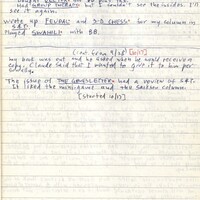 see it again.
Wrote up FEUDAL and 3-D CHESS for my columns in
S&T.
Played SWAHILI with BB.
(cont from 9/28
my book was out and he asked when he would receive a
copy. Claude said that I wanted to give it to him per
sonally.
The issue of THE GAMESLETTER had a review of S&T.
It liked the mini-game and the Sackson column.
[started 10/17]